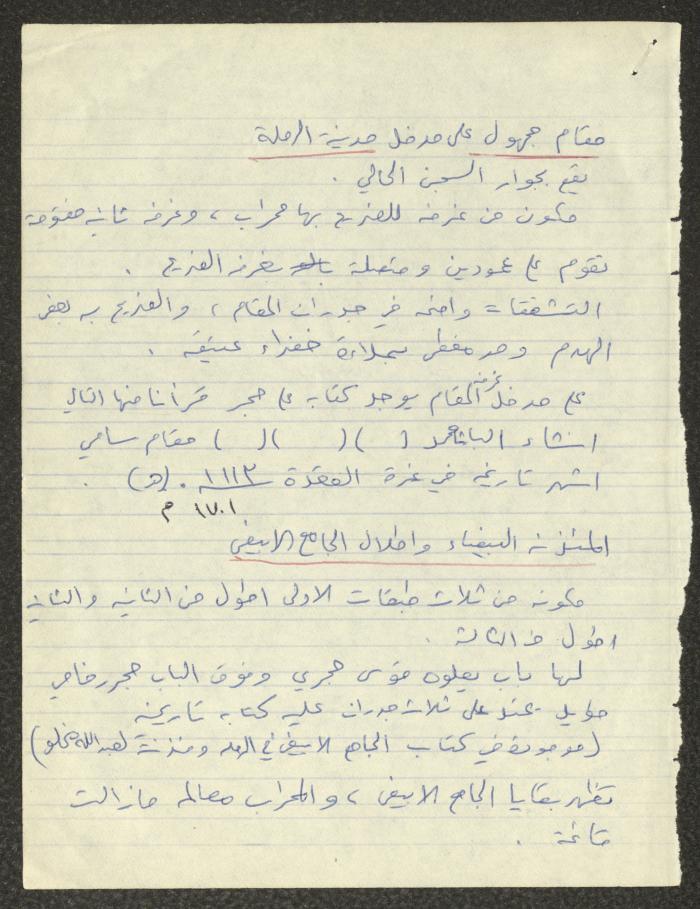 مقام مجهول على مدخل مدينة الرملة
يقع بجوار السجن الحالي .
مكون من غرفة للضريح بها محراب ، وغرفة ثانية مفتوحة
تقوم على عمودين ومتصلة بغرفة الضريح .
التشققات واضحة في جدران المقام ، والضريح به بعض
الهدم وهو مغطى بملاءة خضراء عتيقة .
على مدخل غرفة المقام يوجد كتابة على حجر قرأنا منها التالي
انشاء الباشا محمد ( ) ( ) ( ) مقام سامي
اشهر تاريخه في غرة القعدة ١١١٣ . (هـ) .
١٧٠١ م
المئذنة البيضاء واطلال الجامع الابيض
مكونة من ثلاث طبقات الاولى اطول من الثانية والثانية
اطول من الثالثة .
لها باب يعلوه قوس حجري وفوق الباب حجر رخامي
طويل يمتد على ثلاث جدران عليه كتابة تاريخية
(موجودة في كتاب الجامع الابيض في الرملة ومئذنته لعبدالله مخلص)
تظهر بقايا الجامع الابيض ، والمحراب معالمه مازالت
قائمة .